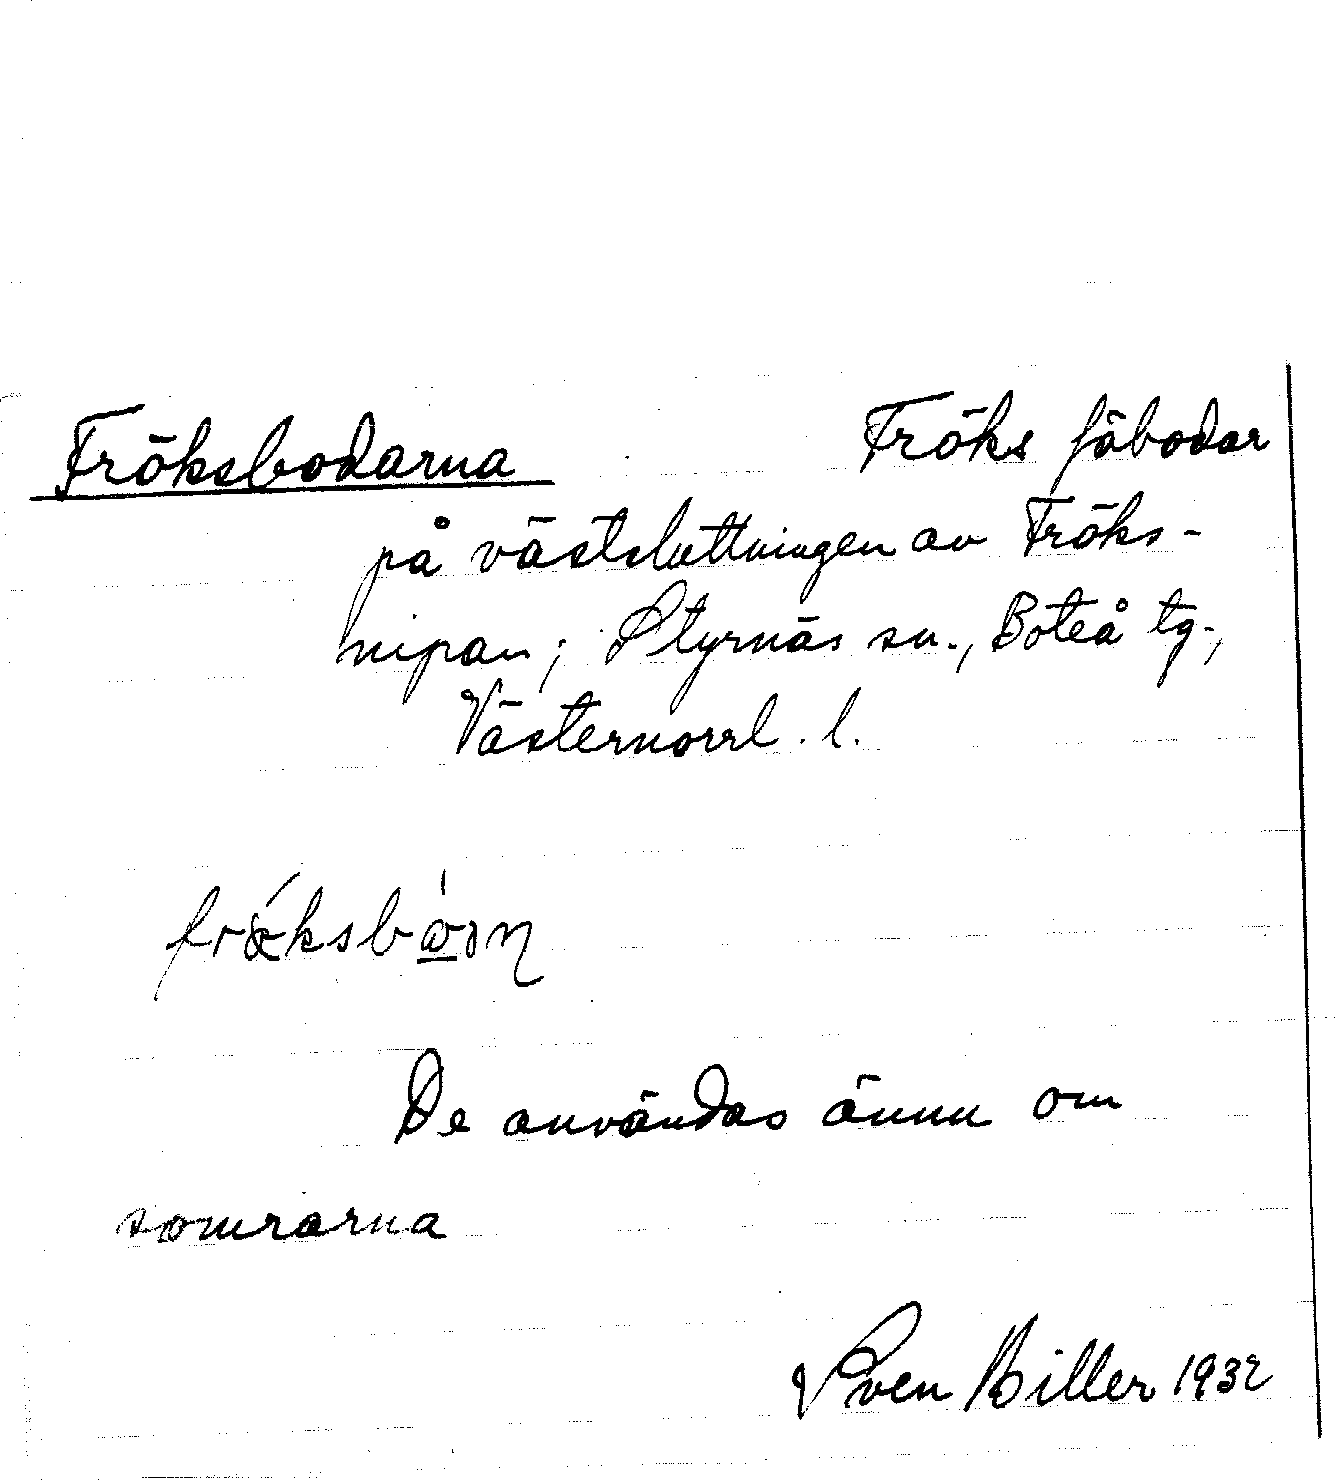 Fröksbodarna Fröks fäbodar
på västsluttningen av Fröks-
nipan; Styrnäs sn., Boteå tg.,
Västernorrl. l.
De användas ännu om
somrarna
Sven Biller 1932